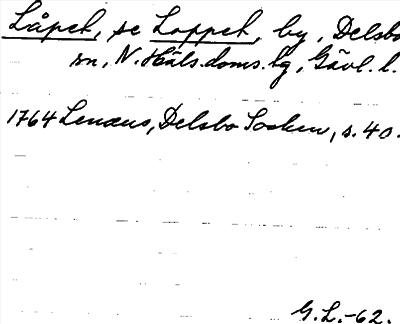 Låpeh, se Loppeh, by, Delsbo
sn, N. Häls. doms. hg, Gävl. l.
1764 Lenæus, Delsbo Socken, s. 40.
G.L.-62.